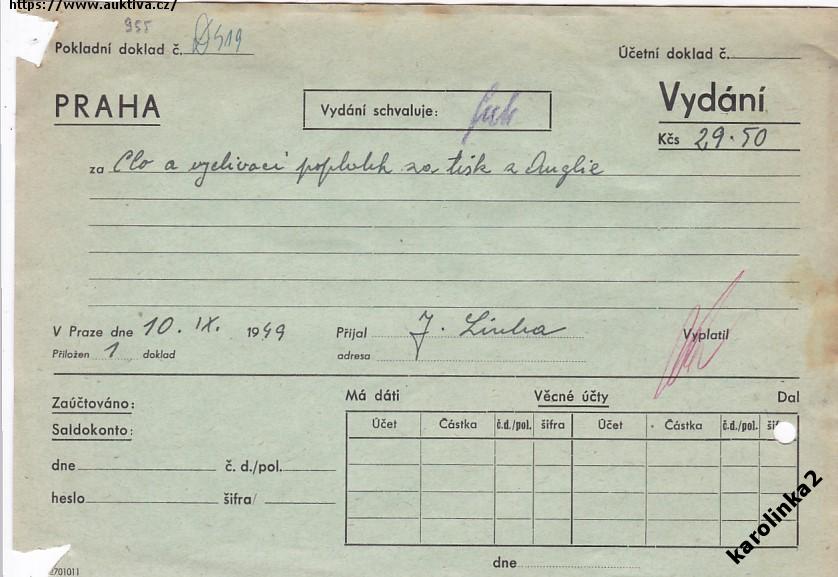 https://www.auktiva.cz/
955
Pokladní doklad č. D519
Účetní doklad č.
PRAHA
Vydání schvaluje:
Vydání
Kčs 29.50
za Clo a vyclívací poplatek za tisk z Anglie
V Praze dne 10. IX. 1949
Přijal J. Linha
Vyplatil
Přiložen 1 doklad
adresa
Zaúčtováno:
Má dáti Věcné účty Dal
Saldokonto:
Účet Částka č.d./pol. šifra Účet Částka č.d./pol.
dne č. d./pol.
heslo šifra/
dne
karolinka2
2701011